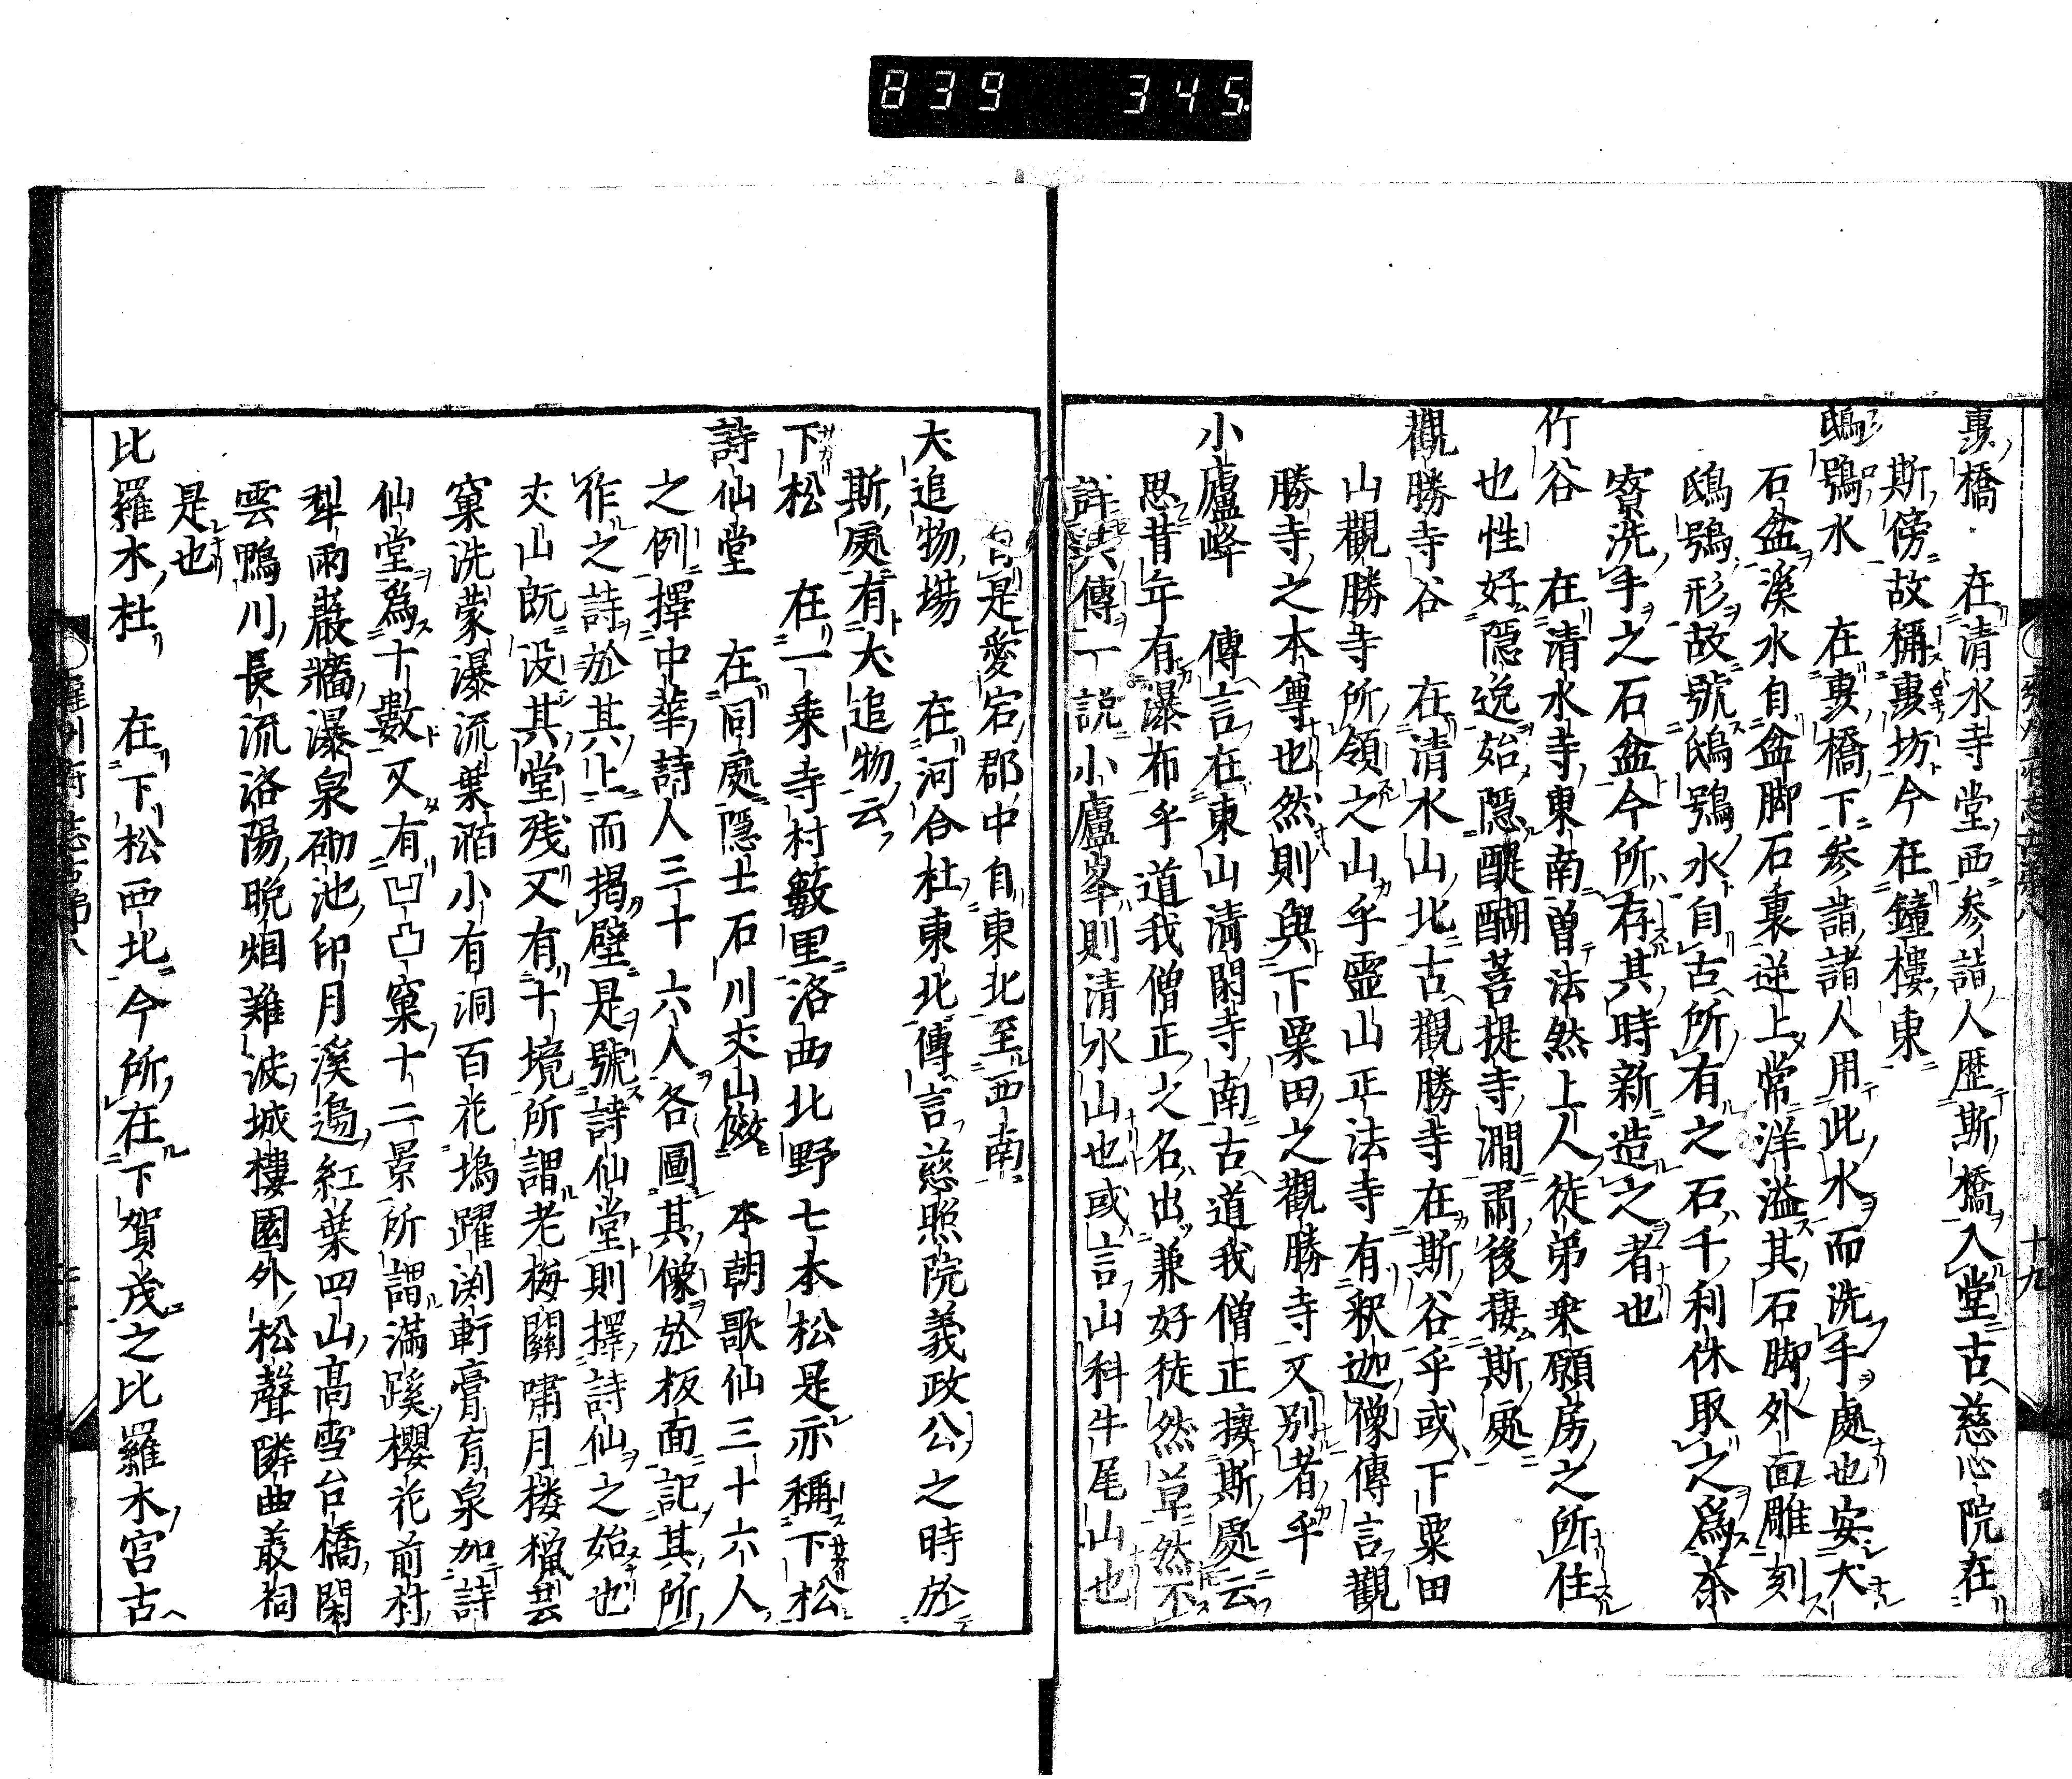 839 345
轟橋 在清水寺堂西参詣人歴斯橋入堂古慈心院在
斯傍故稱轟坊今在鐘樓東
鴟鴞水 在轟橋下参詣諸人用此水而洗手處也安大
石盆溪水自盆脚石裏逆上常洋溢其石脚外面雕刻
鴟鴞形故號鴟鴞水自古所有之石千利休取之爲茶
寮洗手之石盆今所存其時新造之者也
竹谷 在清水寺東南曽法然上人徒弟衆願房之所住
也性好隱逸始隱醍醐菩提寺澗肅後棲斯處
觀勝寺谷 在清水山北古觀勝寺在斯谷乎或下粟田
山觀勝寺所領之山乎靈山正法寺有釈迦像傳言觀
勝寺之本尊也然則與下粟田之觀勝寺又別者乎
小廬峰 傳言在東山清閑寺南古道我僧正捿斯處云
思昔年有瀑布乎道我僧正之名出兼好徒然草然不
詳其傳一説小廬峯則清水山也或言山科牛尾山也
十九
是愛宕郡中自東北至西南
犬追物場 在河合杜東北傳言慈照院義政公之時於
斯處有犬追物云
下松 在一乗寺村籔里洛西北野七本松是亦稱下松
詩仙堂 在同處隱士石川丈山傚 本朝歌仙三十六人
之例擇中華詩人三十六人各圖其像於板面記其所
作之詩於其上而掲壁是號詩仙堂則擇詩仙之始也
丈山既没其堂残又有十境所謂老梅關嘯月楼獵芸
窠洗蒙瀑流葉㴞小有洞百花塢躍渕軒膏肓泉加詩
仙堂爲十數又有凹凸窠十二景所謂満蹊櫻花前村
犁雨巖墻瀑泉砌池印月溪邉紅葉四山高雪台橋閑
雲鴨川長流洛陽晩烟難波城樓園外松聲隣曲叢祠
是也
比羅木杜 在下松西北今所在下賀茂之比羅木宮古